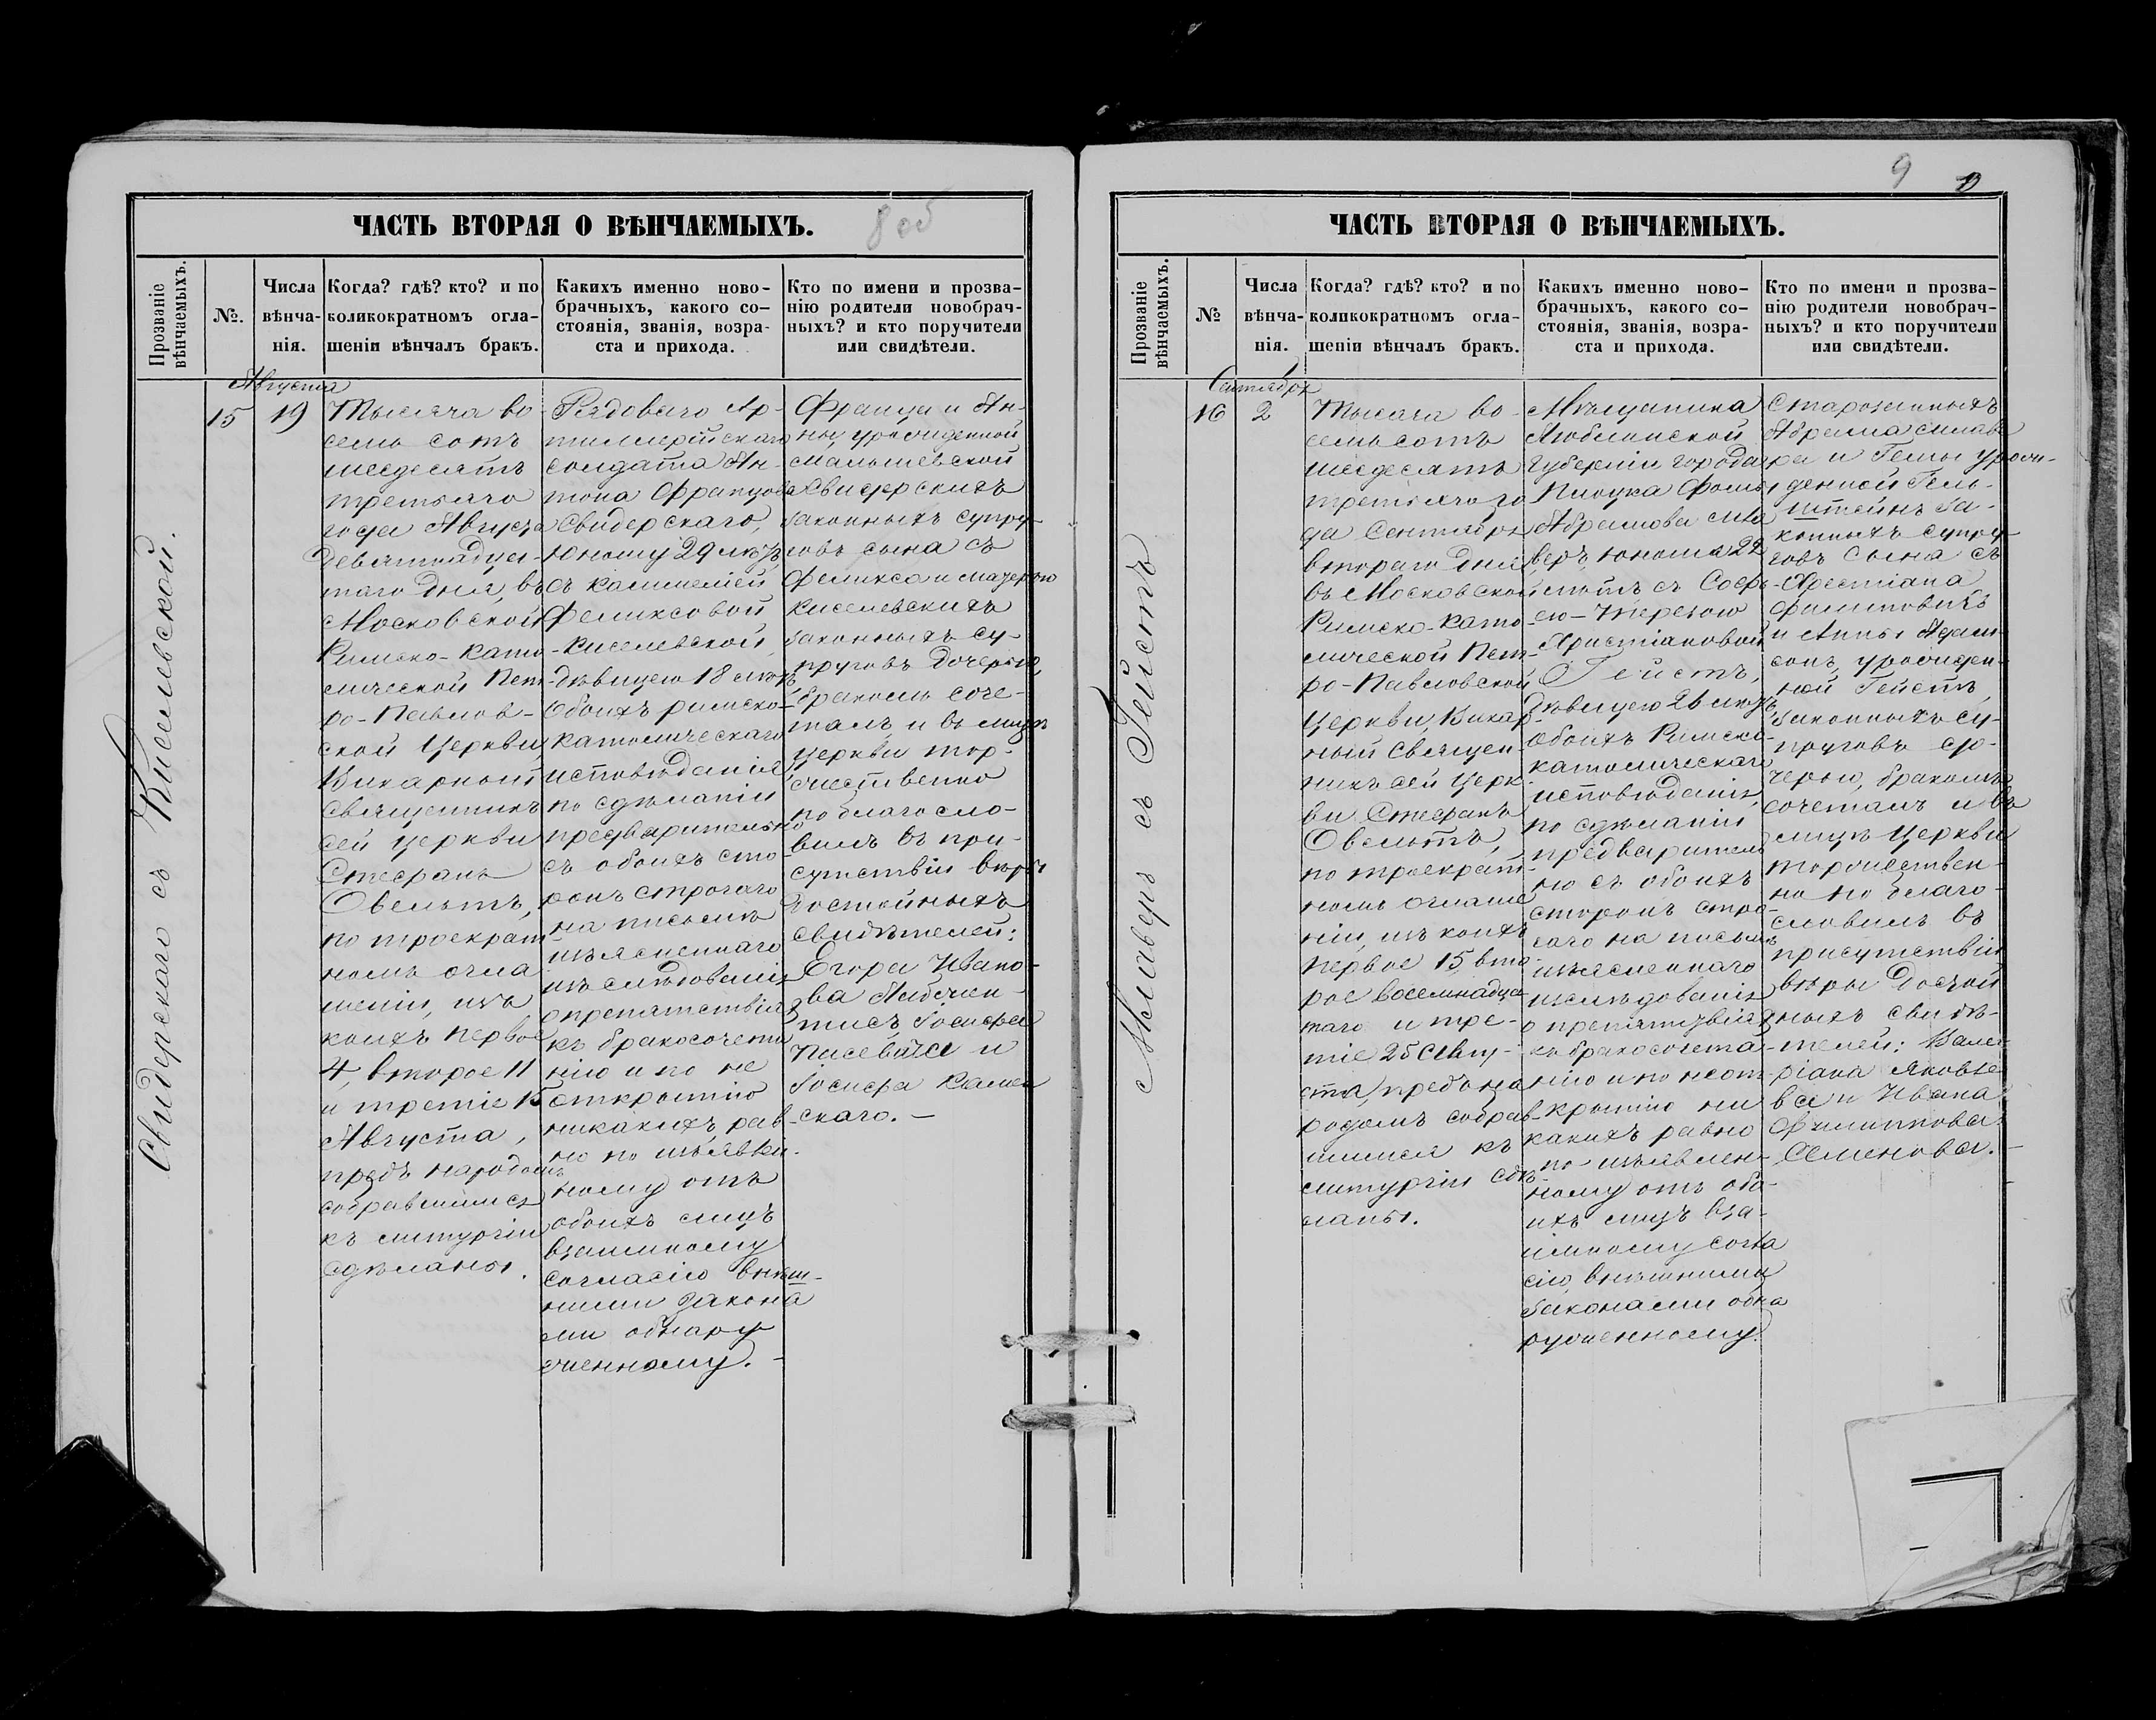 ЧАСТЬ ВТОРАЯ О ВѢНЧАЕМЫХЪ.
8 об
Прозваніе вѣнчаемыхъ.
№.
Числа вѣнча-
нія.
Когда? гдѣ? кто? и по
коликократномъ огла-
шеніи вѣнчалъ бракъ.
Какихъ именно ново-
брачныхъ, какого со-
стоянія, званія, возра-
ста и прихода.
Кто по имени и прозва-
нію родители новобрач-
ныхъ? и кто поручители
или свидѣтели.
Свидерскаго съ Киселевской.
Августа
15
19
Тысяча во-
семь сотъ
шесдесятъ
третьяго
года Августа
девятнадца-
таго дня, въ
Московской
Римско-като-
лической Пет-
ро-Павлов-
ской Церкви,
Викарный
Священникъ
сей церкви
Стефанъ
Овельтъ,
по троекрат
номъ огла
шеніи, изъ
коихъ первое
4, второе 11
и третіе 15
Августа,
предъ народомъ
собравшимся
къ литургіи
сдѣланы.
Рядоваго Ар-
тиллерійскаго
солдата Ан-
тона Францова
Свидерскаго,
юношу 29 лѣтъ,
съ Камиллией
Феликсовой
Киселевской,
дѣвицею 18 лѣтъ,
обоихъ римско-
католическаго
исповѣданія,
по сдѣланіи
предварительно
съ обоихъ сто
ронъ строгаго
на письмѣ
изъясненнаго
изслѣдованія
о препятствіи
къ бракосочета
нію и по не
открытію
никакихъ рав-
но по изъявлен.
ному отъ
обоихъ лицъ
взаимному
согласію внѣш-
ними закона
ми обнару
женному.-
Франца и Ан-
ны, урожденной
Малышевской
Свидерскихъ
законныхъ супру-
говъ сына съ
Феликса и
Киселевскихъ
законныхъ су-
пруговъ дочерью,
бракомъ соче-
талъ, и въ лицѣ
церкви тор-
жественно
поблагосло-
вилъ въ при-
сутствіи вѣры
достойныхъ
свидѣтелей:
Егора Ивано-
ва
Іосифа
и
Іосифа Камен
скаго.-
9
ЧАСТЬ ВТОРАЯ О ВѢНЧАЕМЫХЪ.
Прозваніе вѣнчаемыхъ.
№
Числа вѣнча-
нія.
Когда? гдѣ? кто? и по
коликократномъ огла-
шеніи вѣнчалъ бракъ.
Какихъ именно ново-
брачныхъ, какого со-
стоянія, званія, возра-
ста и прихода.
Кто по имени и прозва-
нію родители новобрач-
ныхъ? и кто поручители
или свидѣтели.
съ Гейстъ
Сентября
16
2
Тысяча во-
семьсотъ
шесдесятъ
третьяго го
да Сентября
втораго дня,
въ Московской
Римско-като
лической Пет-
ро-Павловской
Церкви, Викар-
ный Священ
никъ сей Церк-
ви Стефанъ
Овельтъ,
по троекрат-
номъ оглаше
ніи, изъ коихъ
первое 15, вто-
рое восемнадца
таго и тре-
тіе 25 Авгу-
ста, предъ на
родомъ собрав-
шимся къ
литургіи сдѣ-
ланы.
Мѣщанина
Люблинской
Губерніи города
Плоцка Фомы
Абрамова
юноша 22
лѣтъ съ Софь-
ею-Терезою
Христіановой
Гейстъ,
дѣвицею 26 лѣтъ,
обоихъ Римско-
католическаго
исповѣданія,
по сдѣланіи
предваритель
но съ обоихъ
сторонъ стро-
гаго на письмѣ
изъясненнаго
изслѣдованія
о препятствіи
къ бракосочета-
нію и по неот-
крытію ни
какихъ равно
по изъявлен-
ному отъ обо-
ихъ лицъ вза-
имному согла
сію, внѣшними
законами обна
руженному.
Старозаконныхъ
Абрама
и урож-
денной Гель-
штейнъ за-
конныхъ супру
говъ сына съ
Христіана
Филиповичъ
и Анны Адам-
сонъ, урожден-
ной Гейстъ,
законныхъ су-
пруговъ до-
черью, бракомъ
сочеталъ и въ
лицѣ Церкви
торжествен-
но по благо-
словилъ въ
присутствіи
вѣры достой
ныхъ свидѣ-
телей: Вале-
ріана Яковле-
ва и Ивана
Филиппова
Семенова.-